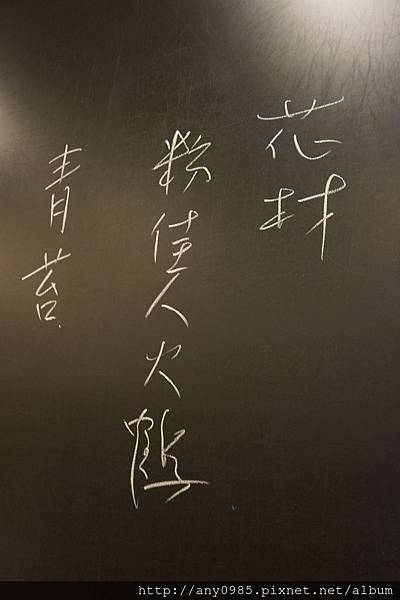 花材
粉佳人火鶴
青苔
http://any0985.pixnet.net/album